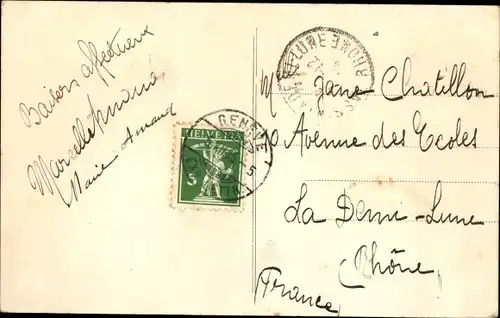 Baisers affectueux
Marcelle Amand
Marie Amand
HELVETIA
5
GENÈVE
RHONE
Mlle Jane Chatillon
Avenue des Ecoles
La Demi-Lune
(Rhône)
France